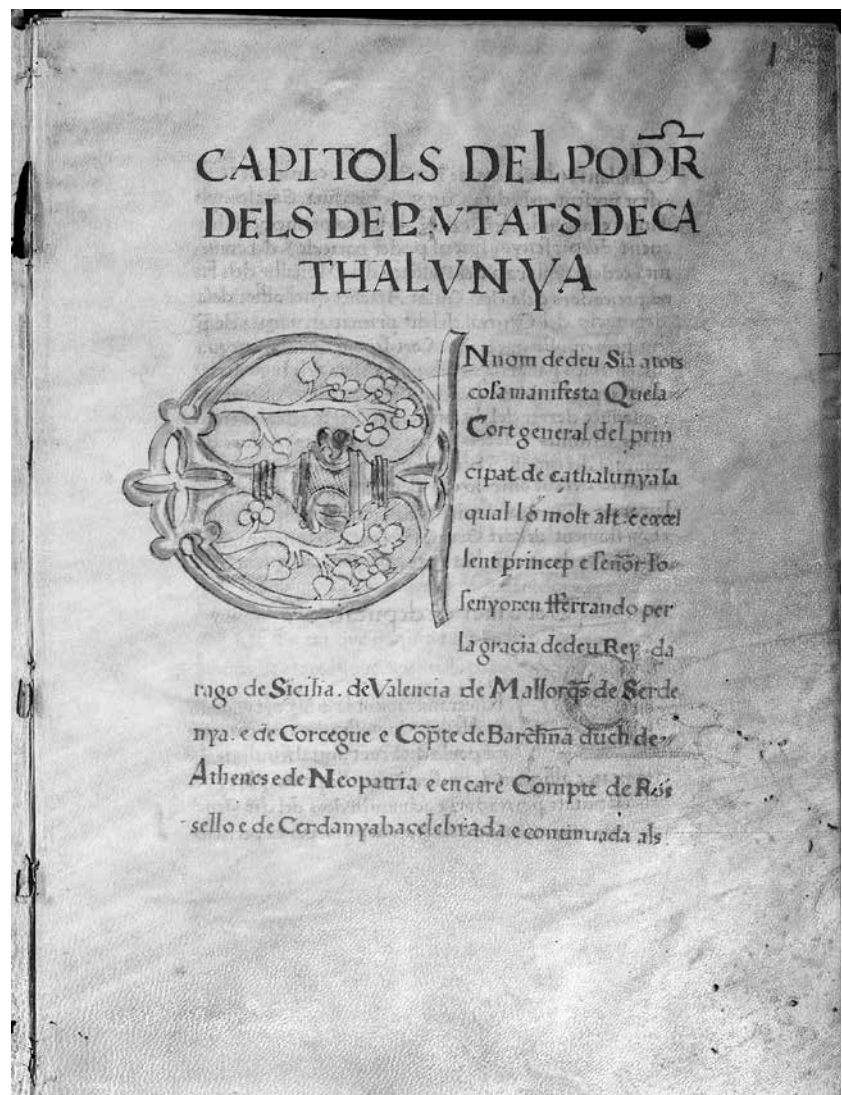 CAPITOLS DELPODR
DELS DEPVTATS DECA
THALVNYA
EN nom de deu Sia atots
cosa manifesta Quela
Cort general del prin
cipat de cathalunya la
qual lo molt alt. e excel
lent princep e señor lo
senyor en fferrando per
la gracia dedeu Rey da
rago de Sicilia. de Valencia de Mallorqs de Serde
nya. e de Corcegue e Cõpte de Barchña duch de
Athenes e de Neopatria e encare Compte de Ros
sello e de Cerdanya ha celebrada e continuada als